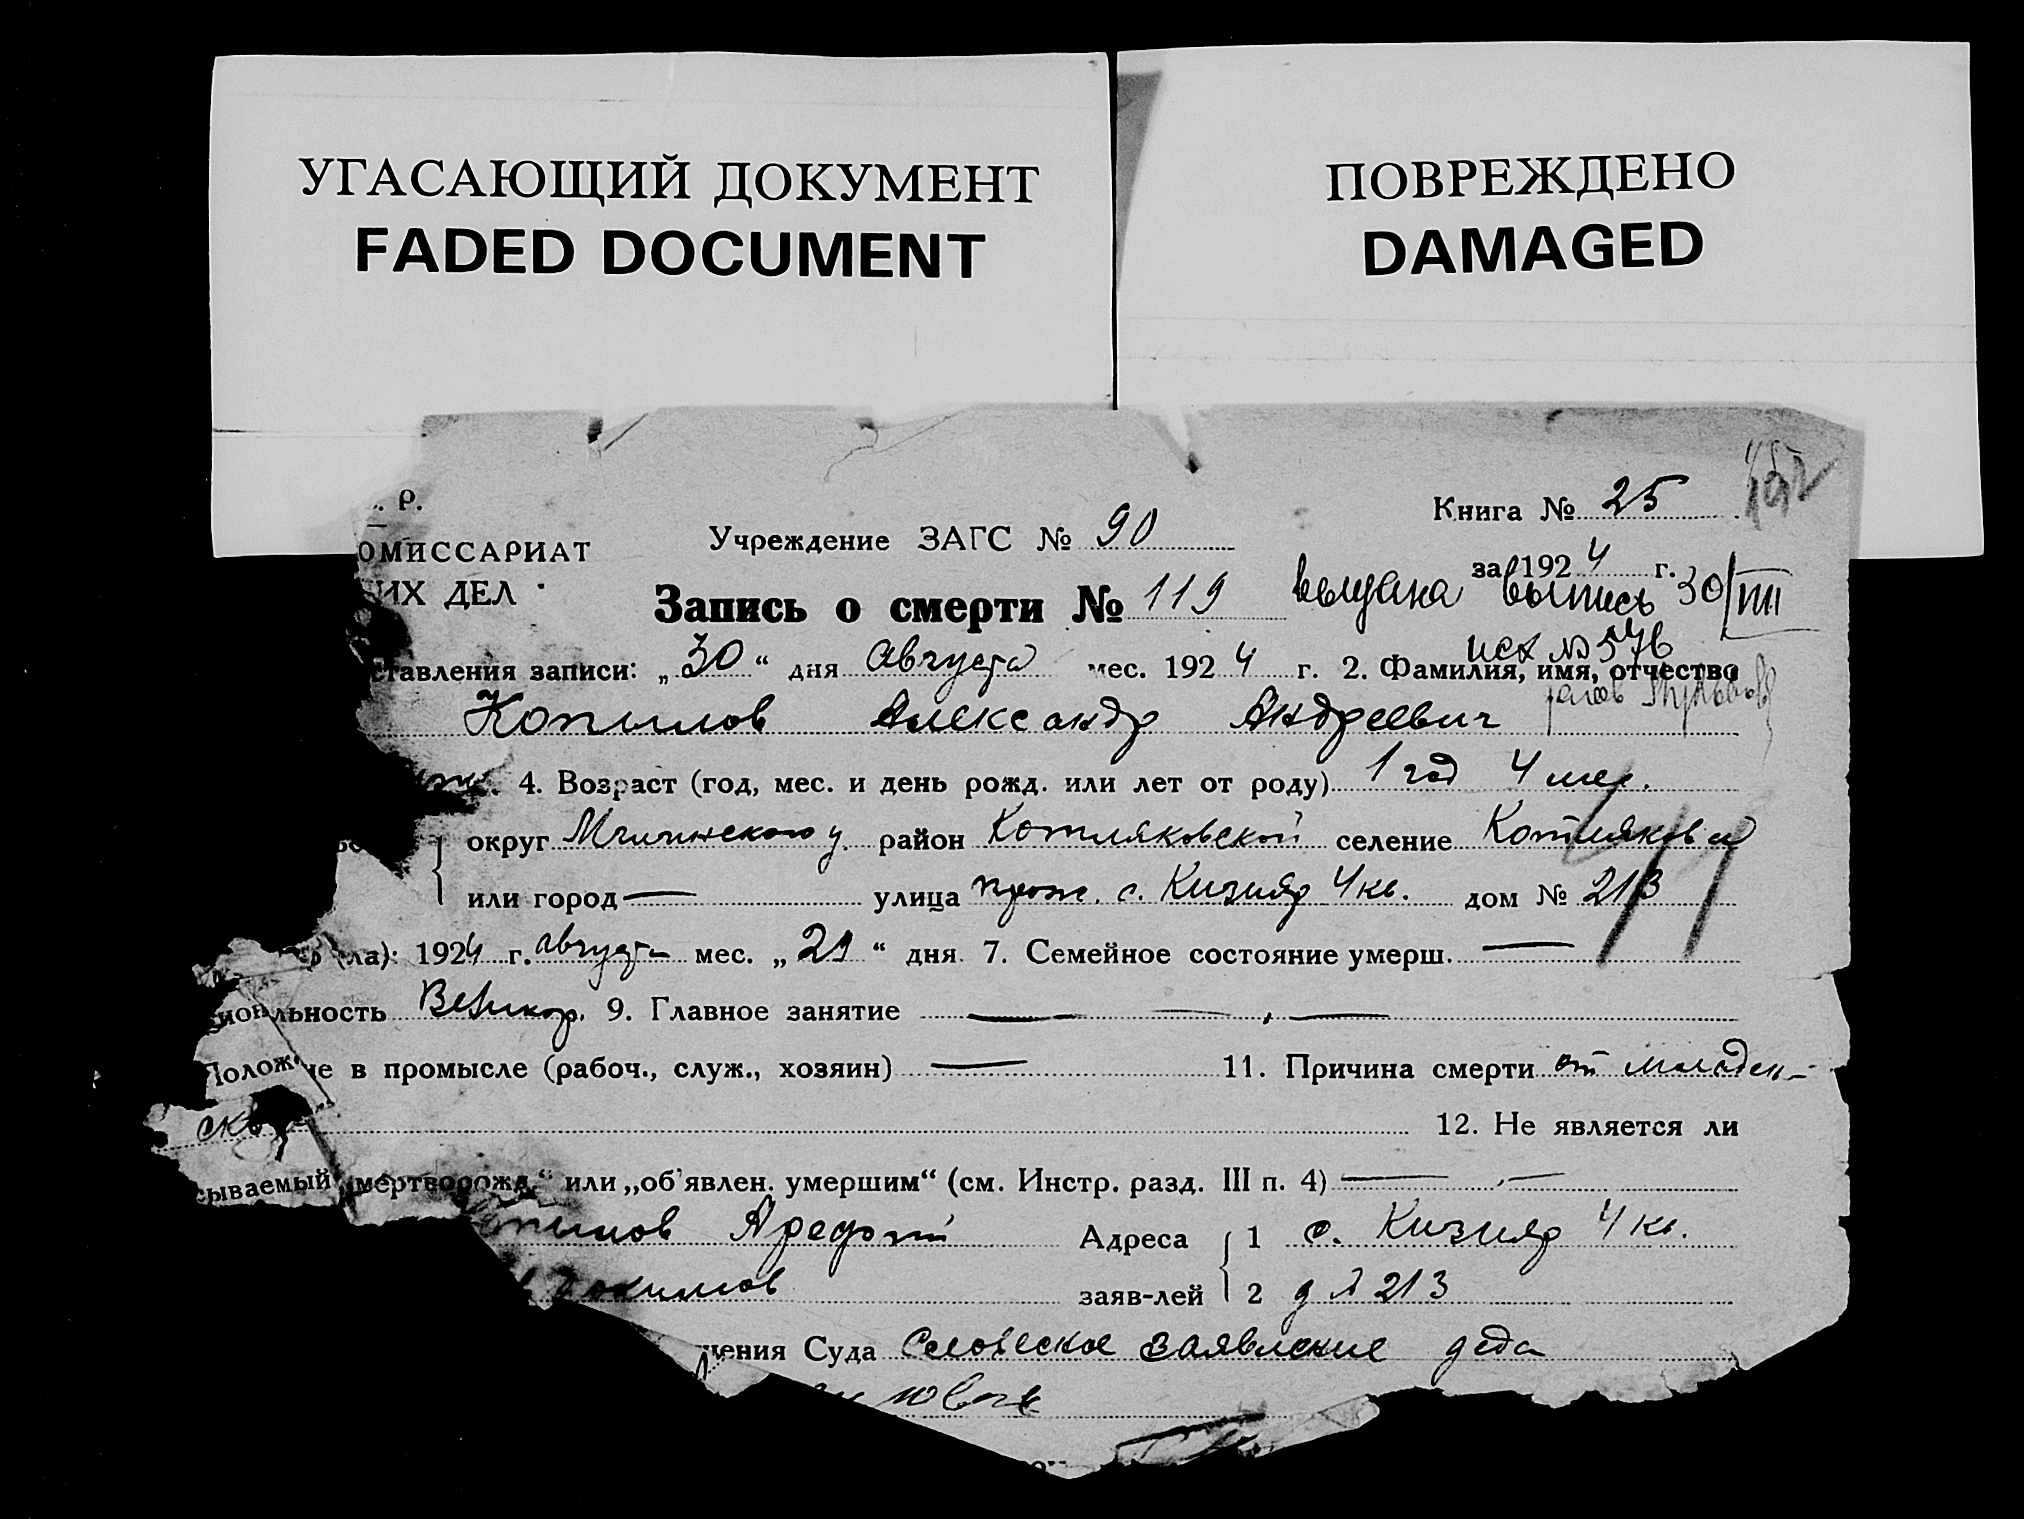 УГАСАЮЩИЙ ДОКУМЕНТ
FADED DOCUMENT
ПОВРЕЖДЕНО
DAMAGED
Р.
Книга № 25
ОМИССАРИАТ
Учреждение ЗАГС № 90
за 1924 г.
ИХ ДЕЛ
Запись о смерти № 119 выдана выпись 30/VIII
исх № 576
ставления записи: „30“ дня августа мес. 1924 г. 2. Фамилия, имя, отчество
Копылов Александр Андреевич
4. Возраст (год, мес. и день рожд. или лет от роду) 1 год 4 мес.
округ у. район Котляковской селение Котляков
или город — улица прож. с. Кизияр 4 кв. дом № 213
(ла): 1924 г. август мес. „29“ дня 7. Семейное состояние умерш. —
иональность Великор. 9. Главное занятие — — , —
Полож ие в промысле (рабоч., служ., хозяин) — 11. Причина смерти от младен-
ско
12. Не является ли
сываемый „мертворожд.“ или „об'явлен. умершим“ (см. Инстр. разд. III п. 4) — , —
пылов Адреса 1 с. Кизияр 4 кв.
заяв-лей 2 д № 213
шения Суда Словеское заявление деда